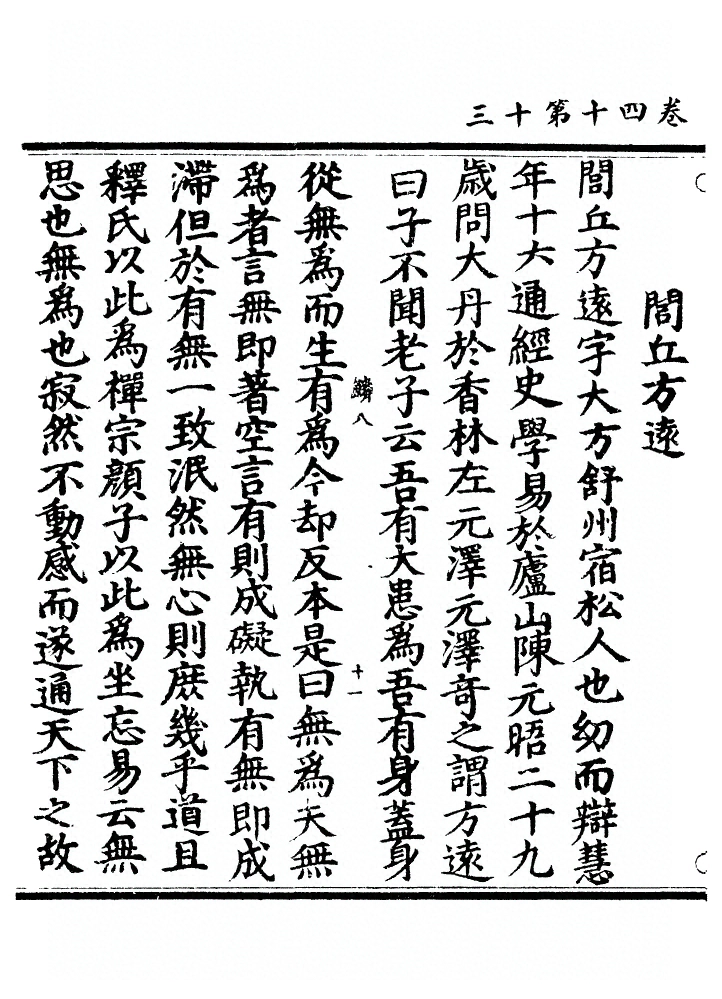 卷四十第十三
閭丘方遠
閭丘方遠字大方舒州宿松人也幼而辯慧
年十六通經史學易於廬山陳元晤二十九
歲問大丹於香林左元澤元澤奇之謂方遠
曰子不聞老子云吾有大患爲吾有身蓋身
鱗八
十一
從無爲而生有爲今却反本是曰無爲夫無
爲者言無即著空言有則成礙執有無即成
滯但於有無一致泯然無心則庶幾乎道且
釋氏以此爲禪宗顔子以此爲坐忘易云無
思也無爲也寂然不動感而遂通天下之故